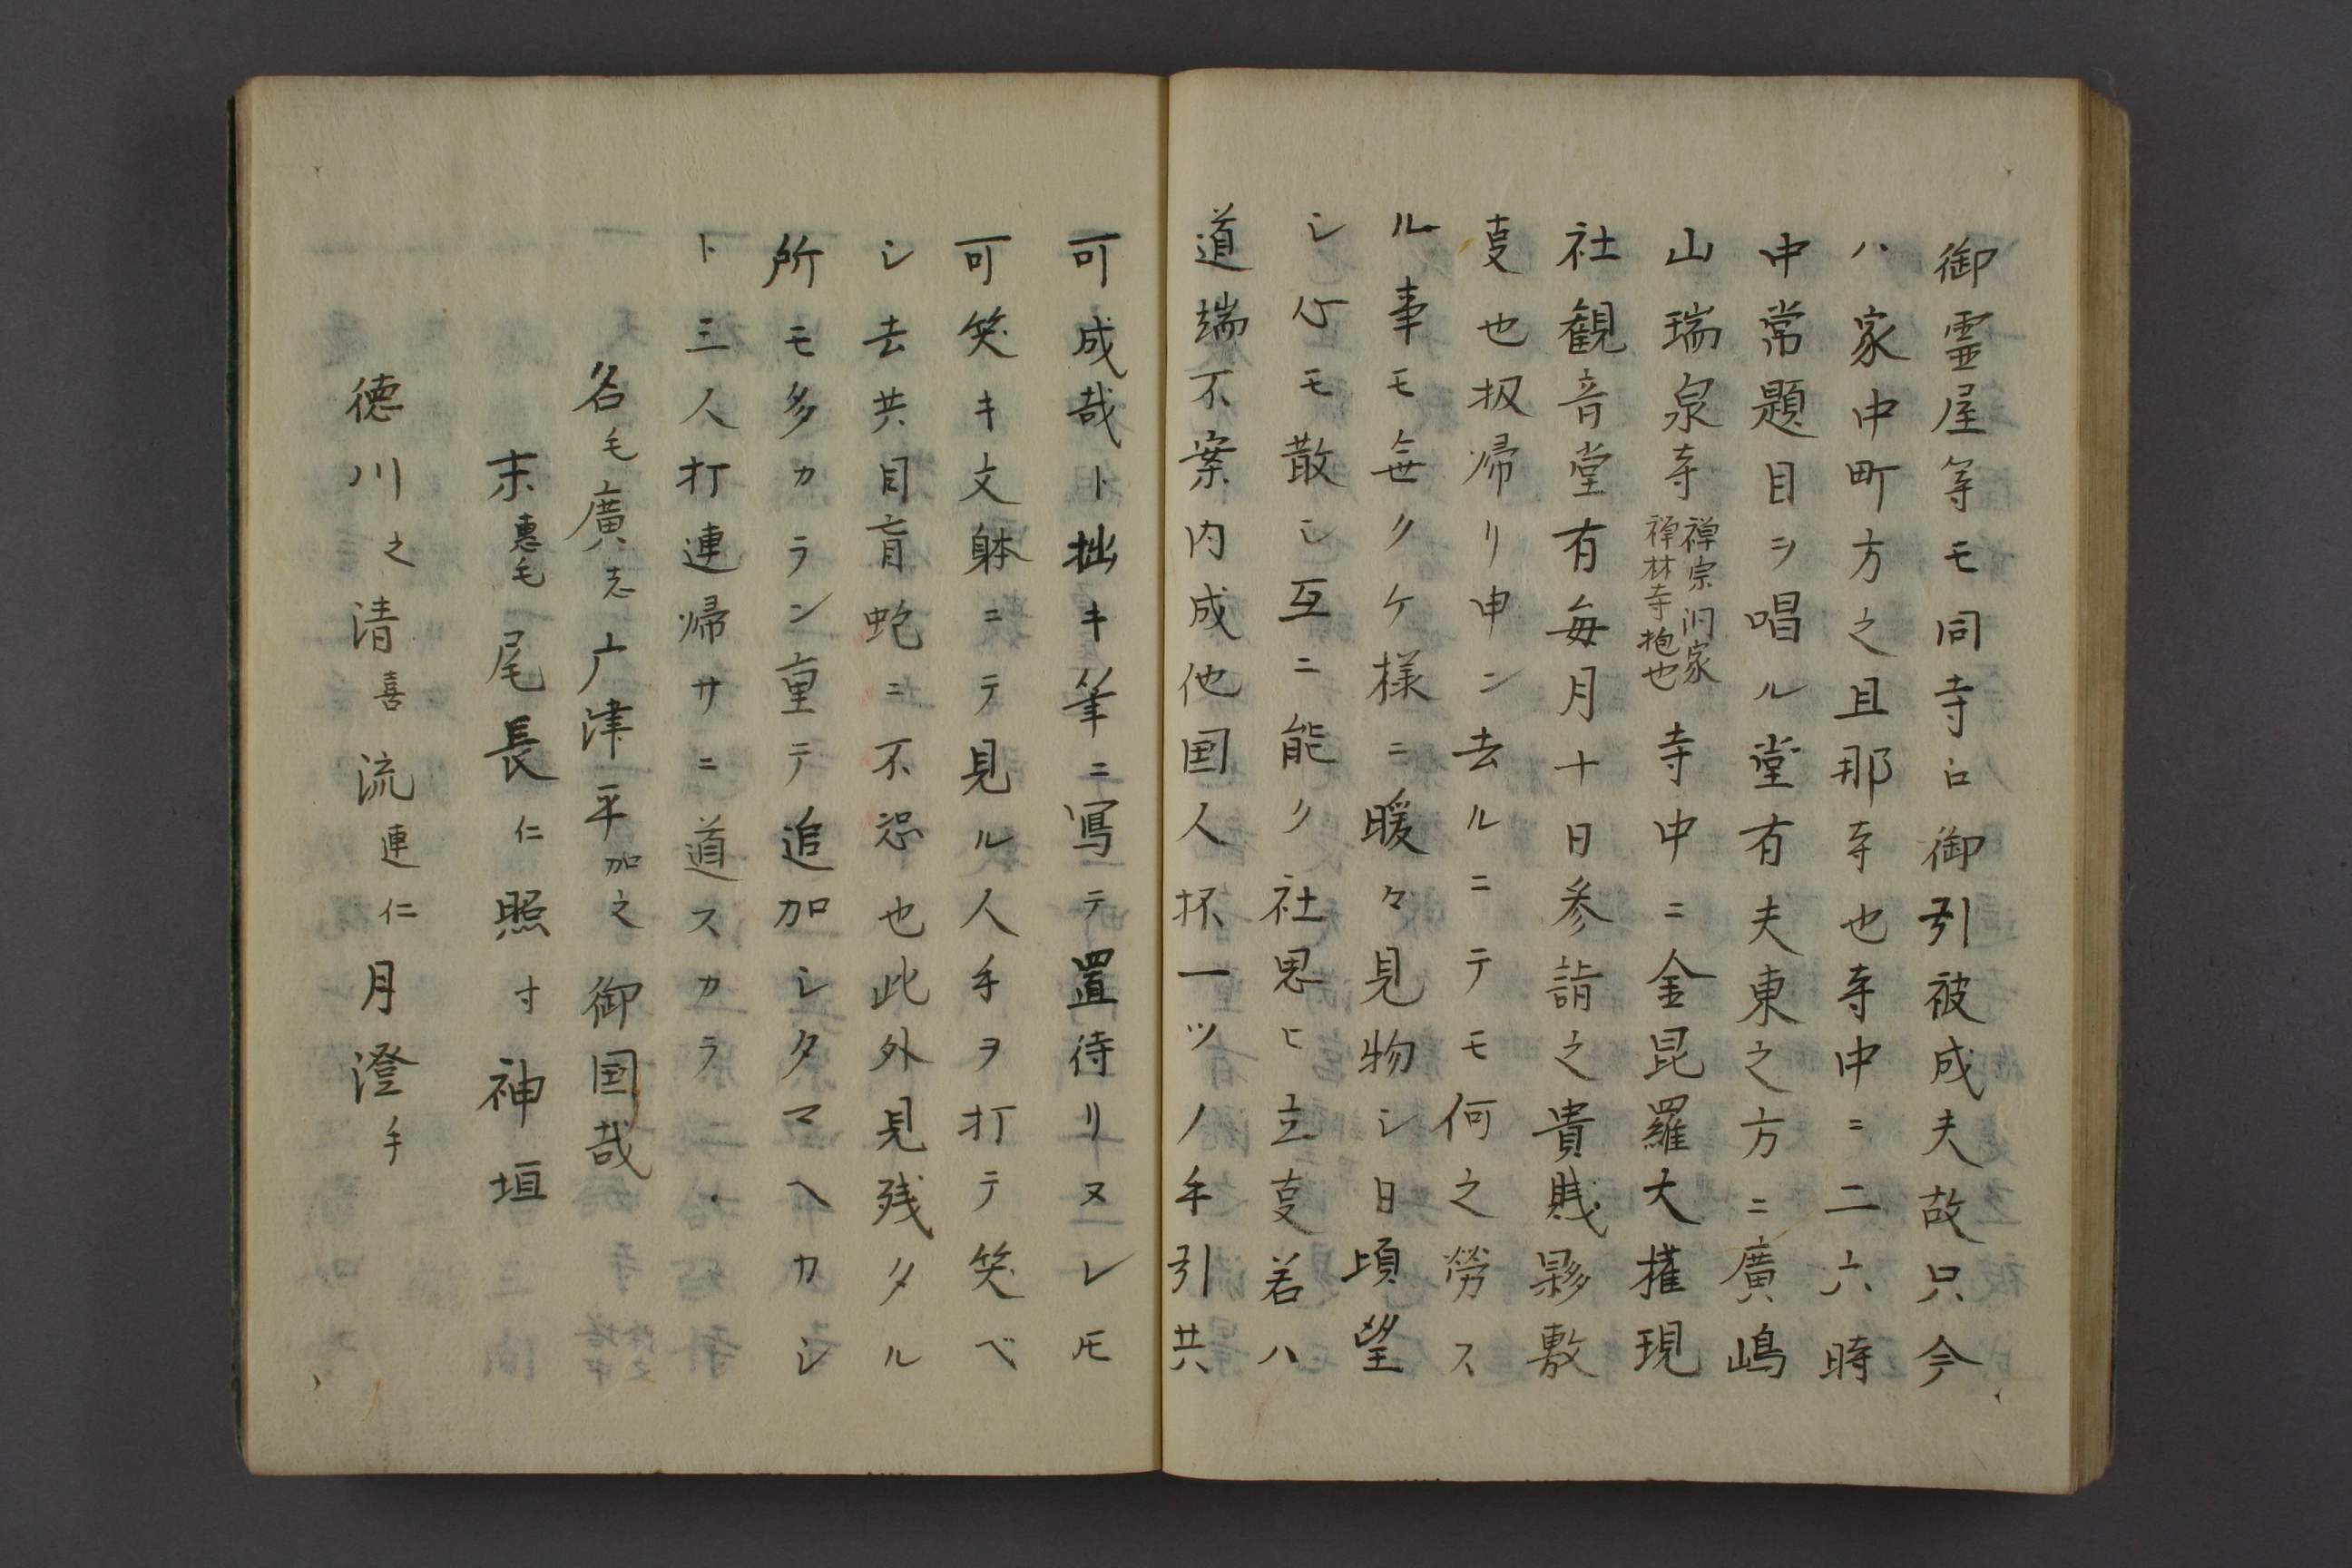 御霊屋等モ同寺ロ御引被成夫故只今
ハ家中町方之且那寺也寺中ニ二六時
中常題目ヲ唱ル堂有夫東之方ニ廣嶋
山瑞泉寺禅宗洞家禅林寺抱也寺中ニ金昆羅大権現
社観音堂有毎月十日参詣之貴賎夥敷
叓也扨帰リ申ン去ルニテモ何之労ス
ル事モ無クケ様ニ暖々見物シ日頃望
シ心モ散シ互ニ能ク社思ヒ立叓若ハ
道端不案内成他国人抔一ツノ手引共
可成哉ト拙キ筆ニ写テ置待リヌレ𪜈
可笑キ文躰ニテ見ル人手ヲ打テ笑ベ
シ去共目盲蛇ニ不恐也此外見残タル
所モ多カラン重テ追加シタマヘカシ
ト三人打連帰サニ道スカラ
名毛廣志广津平加之御国哉
末恵毛尾長仁照寸神垣
徳川之清喜流連仁月澄手